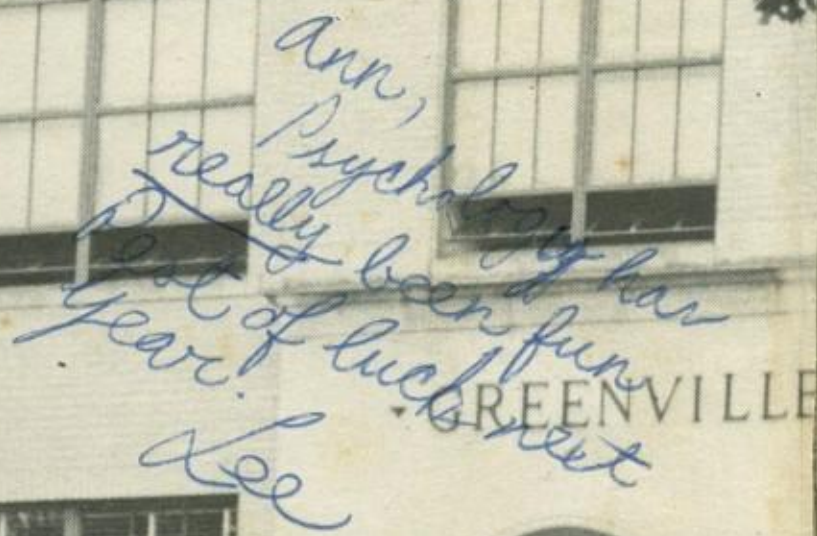 Ann,
Psychology has
really been fun
Best of luck next
year!
Lee
GREENVILLE